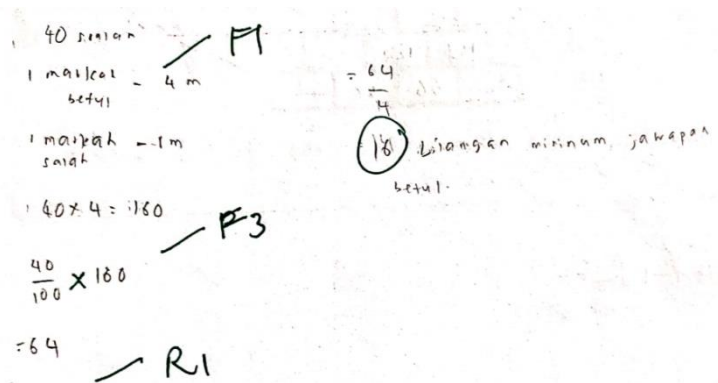 40 soalan
F1
1 markah - 4 m
betul
1 markah - -1 m
salah
40 × 4 = 160
F3
40/100 × 160
= 64
R1
= 64/4
16 Bilangan minimum jawapan
betul.